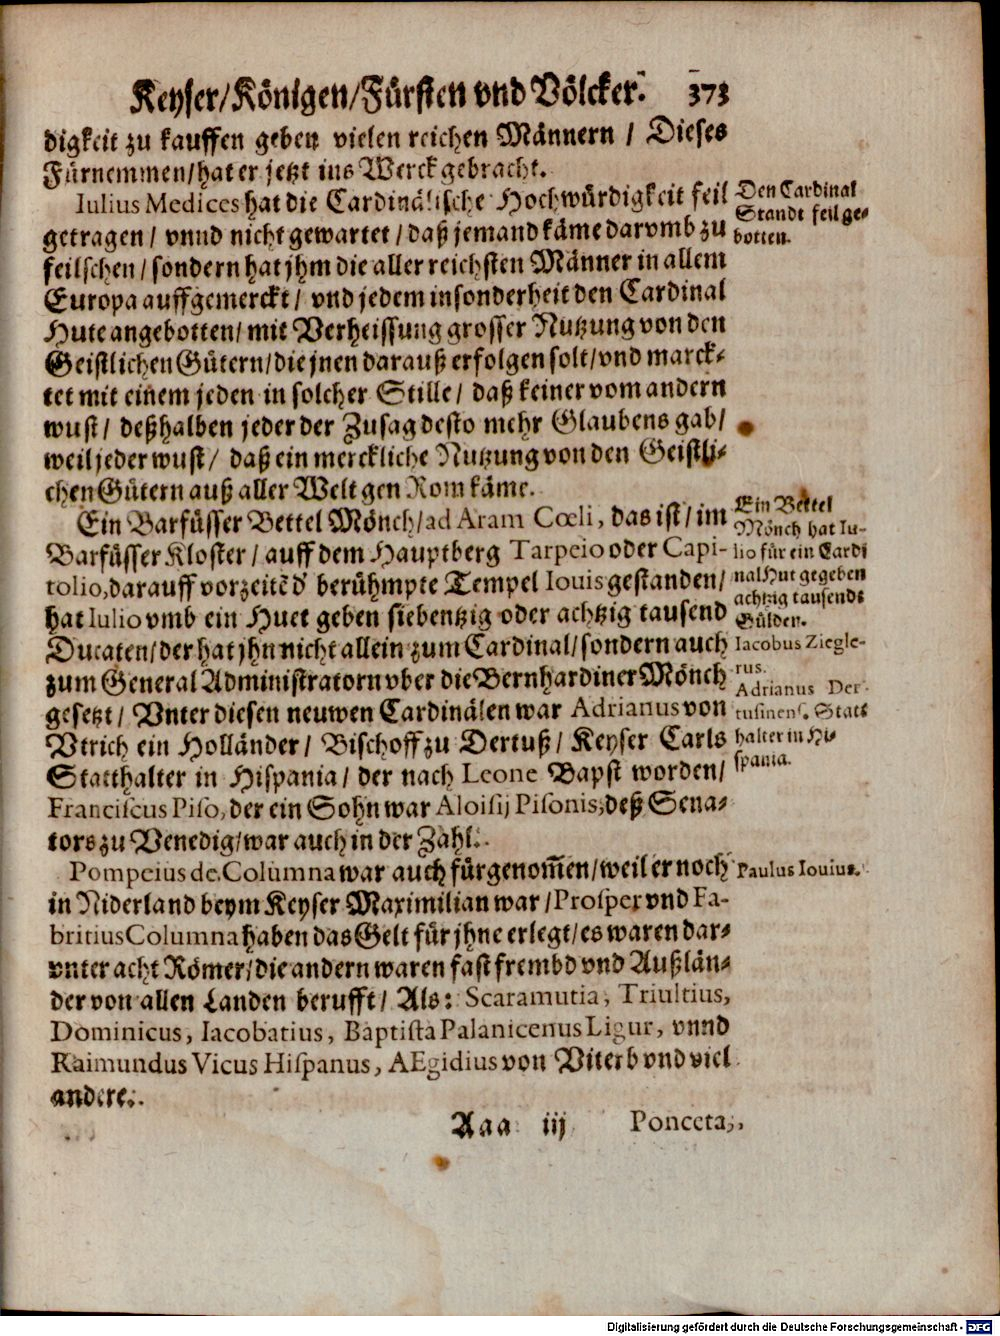 Keyser/Königen/Fürsten vnd Völcker. 373
digkeit zu kauffen geben vielen reichen Männern / Dieses
Fürnemmen/hat er jetzt ins Werck gebracht.
Iulius Medices hat die Cardinälische Hochwürdigkeit feil
getragen / vnnd nicht gewartet / daß jemand käme darvmb zu
feilschen / sondern hat jhm die aller reichsten Männer in allem
Europa auffgemerckt / vnd jedem insonderheit den Cardinal
Hute angebotten/ mit Verheissung grosser Nutzung von den
Geistlichen Gütern/die jnen darauß erfolgen solt/vnd marck-
tet mit einem jeden in solcher Stille / daß keiner vom andern
wust / deßhalben jeder der Zusag desto mehr Glaubens gab/
weil jeder wust / daß ein merckliche Nutzung von den Geistli-
chen Gütern auß aller Welt gen Rom käme.
Den Cardinal
Standt feil ge-
botten.
Ein Barfüsser Bettel Mönch/ad Aram Cœli, das ist / im
Barfüsser Kloster / auff dem Hauptberg Tarpeio oder Capi-
tolio, darauff vorzeitẽ d' berühmpte Tempel Iouis gestanden/
hat Iulio vmb ein Huet geben siebentzig oder achtzig tausend
Ducaten/der hat jhn nicht allein zum Cardinal/sondern auch
zum General Administratorn vber die Bernhardiner Mönch
gesetzt / Vnter diesen neuwen Cardinälen war Adrianus von
Vtrich ein Holländer / Bischoff zu Dertuß / Keyser Carls
Statthalter in Hispania / der nach Leone Bapst worden/
Franciscus Piso, der ein Sohn war Aloisij Pisonis, deß Sena-
tors zu Venedig/war auch in der Zahl.
Ein Bettel
Mönch hat Iu-
lio für ein Cardi
nal Hut gegeben
achtzig tausendt
Gülden.
Iacobus Ziegle-
rus.
Adrianus Der-
tusinens. Statt
halter in Hi-
spania.
Pompeius de Columna war auch fürgenom̃en/weil er noch
in Niderland beym Keyser Maximilian war /Prosper vnd Fa-
britius Columna haben das Gelt für jhne erlegt/es waren dar-
vnter acht Römer/die andern waren fast frembd vnd Außlän-
der von allen Landen berufft / Als: Scaramutia, Triultius,
Dominicus, Iacobatius, Baptista Palanicenus Ligur, vnnd
Raimundus Vicus Hispanus, AEgidius von Viterb vnd viel
andere.
Paulus Iouius.
Aaa iij Ponceta,
Digitalisierung gefördert durch die Deutsche Forschungsgemeinschaft - DFG